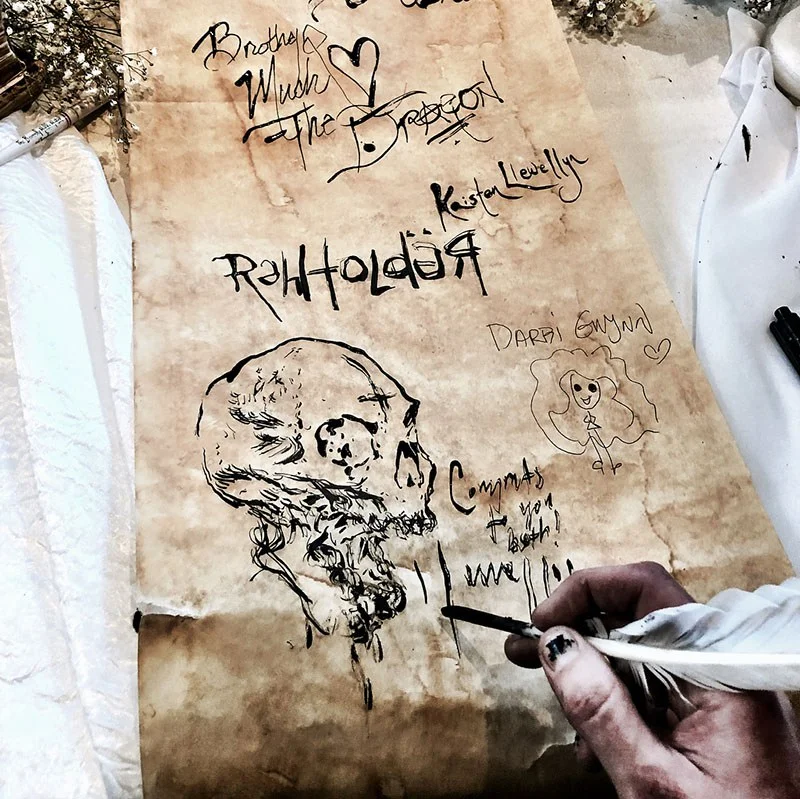 Brother
Much
The DRAGON
Kristen Llewellyn
RaHHoldäR
DARBI GWYNN
Congrats
to you
both!